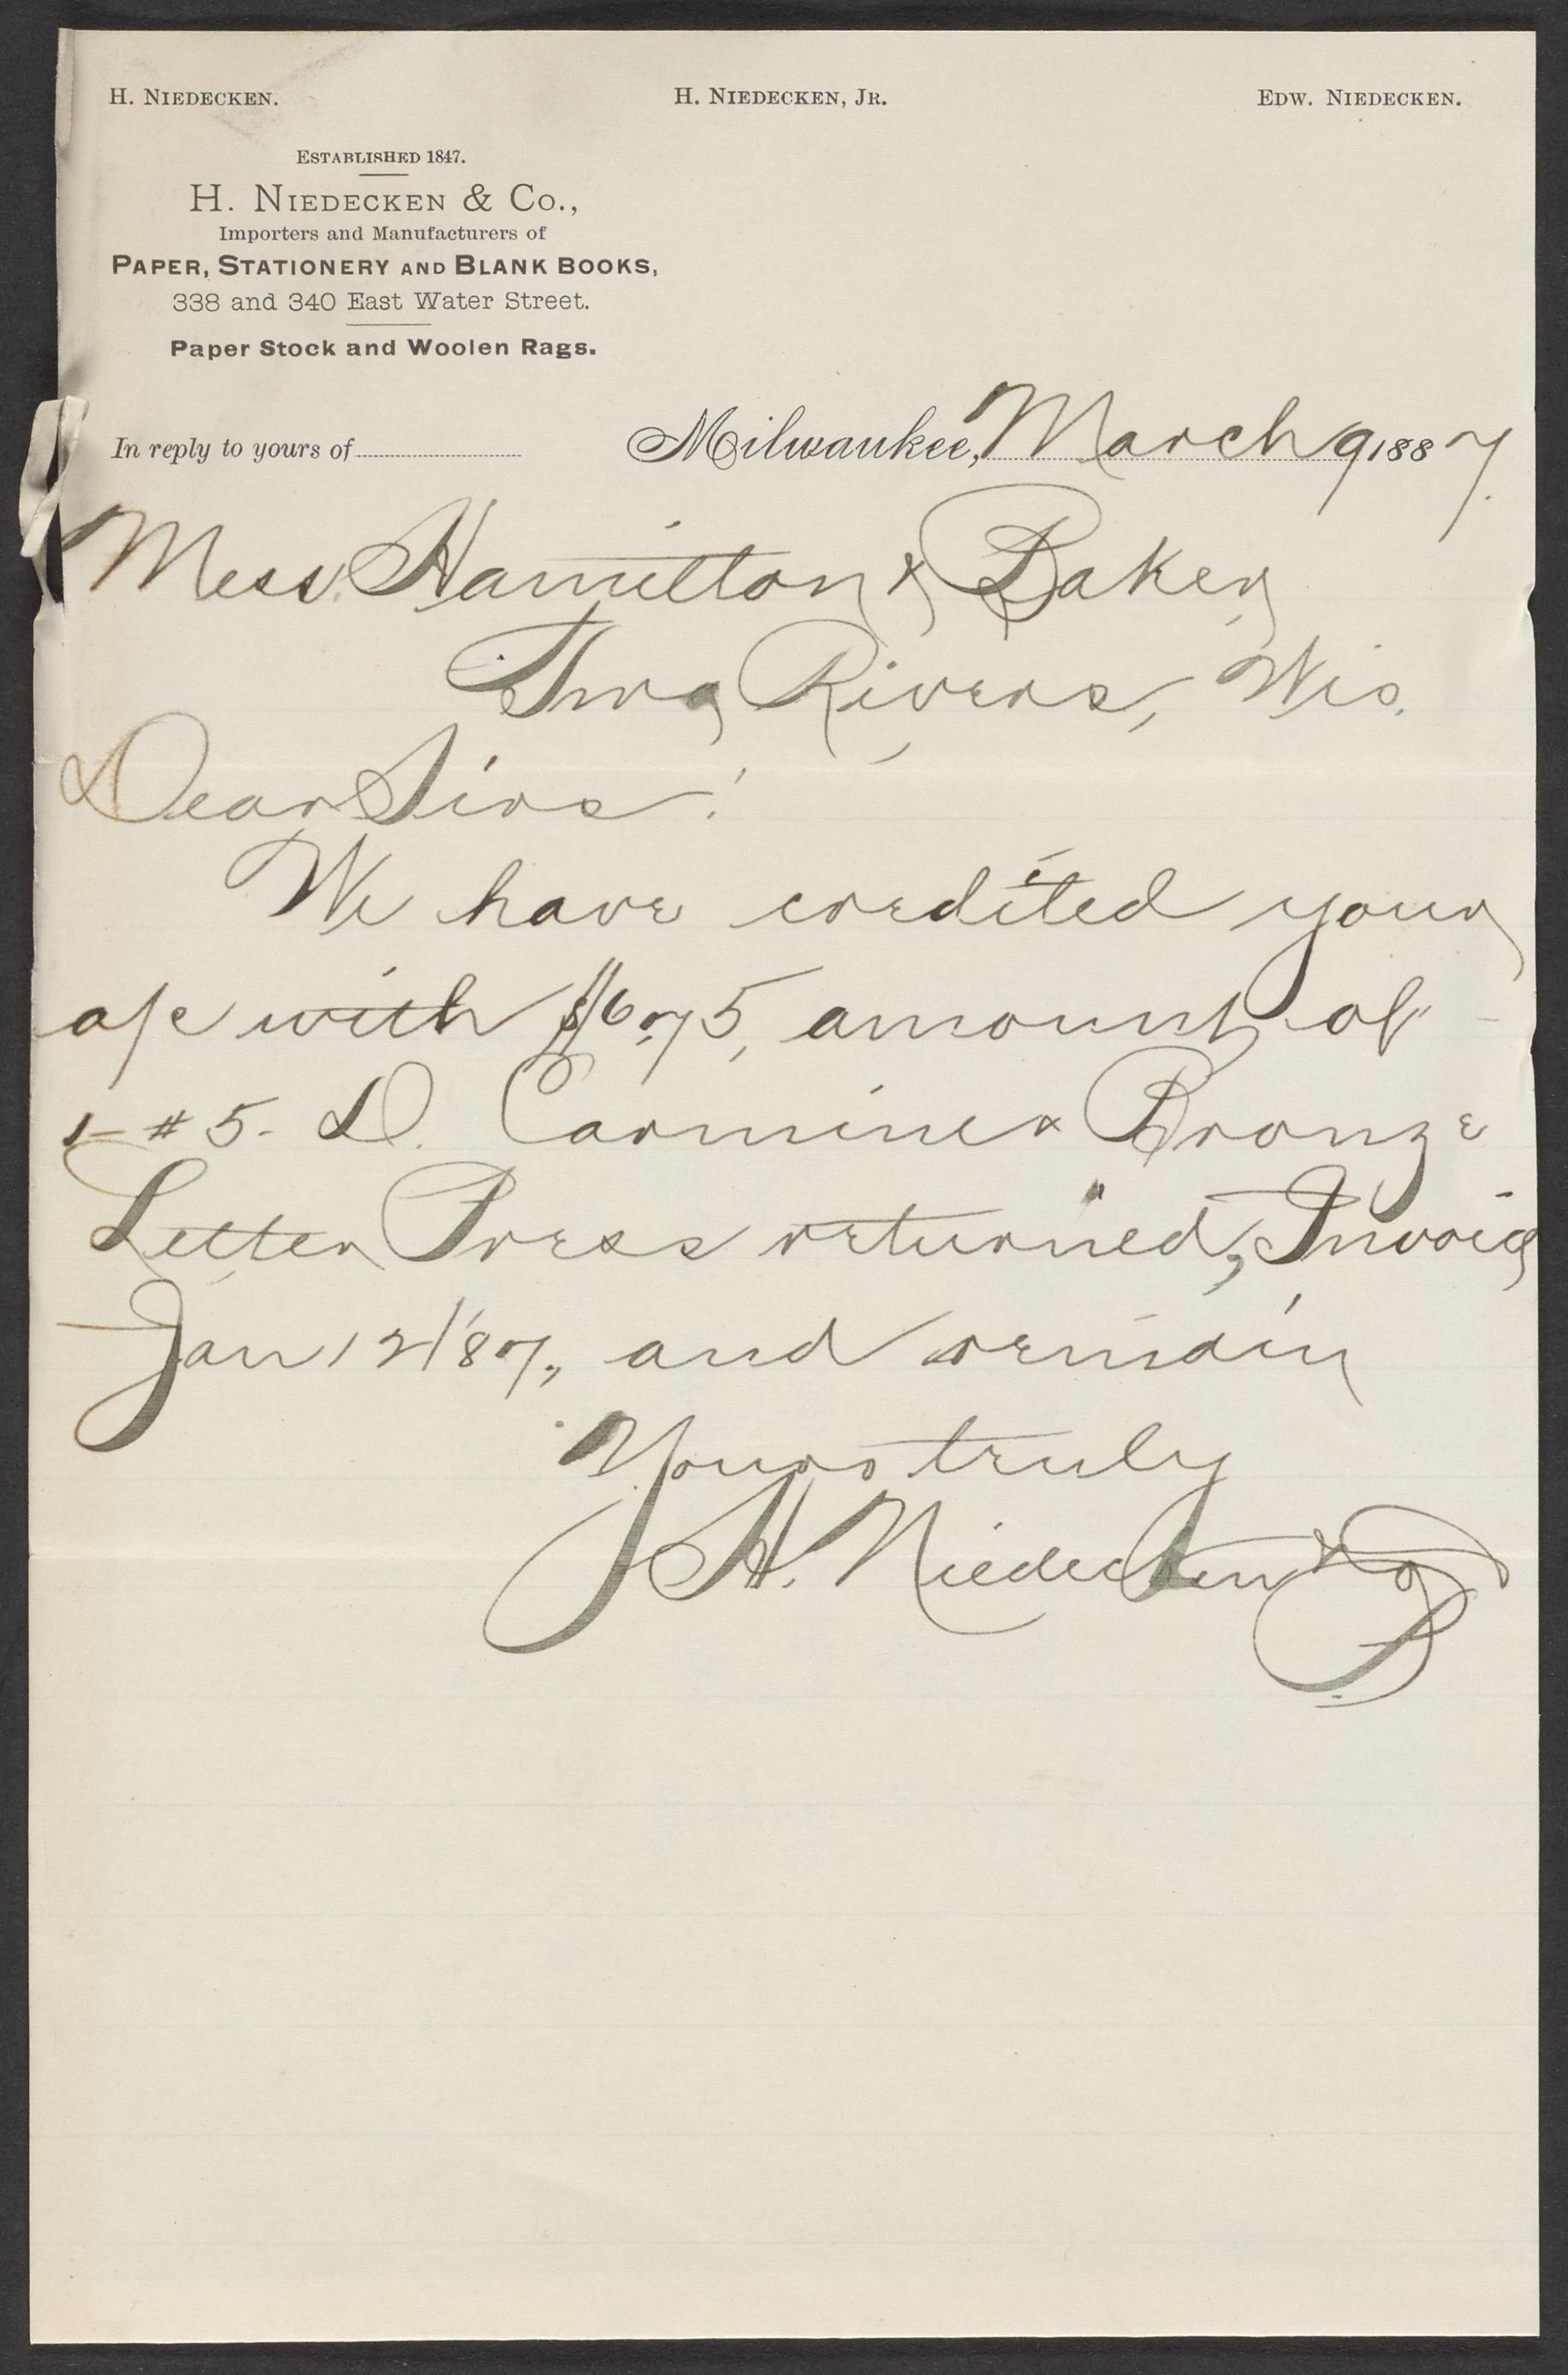 H. NIEDECKEN. H. NIEDECKEN, JR. EDW. NIEDECKEN.
ESTABLISHED 1847.
H. NIEDECKEN & CO.,
Importers and Manufacturers of
PAPER, STATIONERY AND BLANK BOOKS,
338 and 340 East Water Street.
Paper Stock and Woolen Rags.
In reply to yours of Milwaukee, March 9 1887.
Mess. Hamilton & Baker
Two Rivers, Wis.
Dear Sirs!
We have credited your
a/c with $6.75, amount of
1- #5- D. Carmine & Bronze
Letter Press returned, Invoice
Jan 12/87., and remain
Yours truly
H. Niedecken & Co